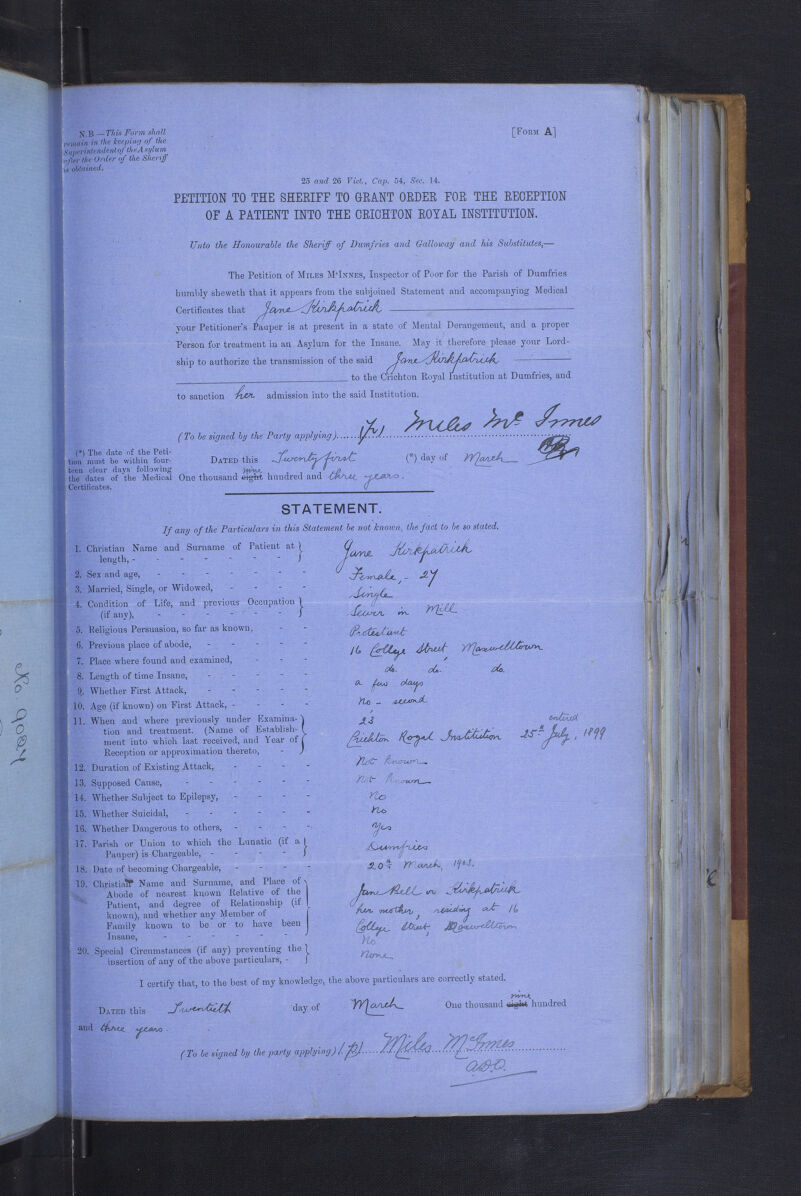 N.B.—This Form shall
remain in the keeping of the
Superintendent of the Asylum
after the Order of the Sheriff
is obtained.
[FORM A]
25 and 26 Vict., Cap. 54, Sec. 14.
PETITION TO THE SHERIFF TO GRANT ORDER FOR THE RECEPTION
OF A PATIENT INTO THE CRICHTON ROYAL INSTITUTION.
Unto the Honourable the Sheriff of Dumfries and Galloway and his Substitutes,—
The Petition of MILES M'INNES, Inspector of Poor for the Parish of Dumfries
humbly sheweth that it appears from the subjoined Statement and accompanying Medical
Certificates that Jane Kirkpatrick
your Petitioner's Pauper is at present in a state of Mental Derangement, and a proper
Person for treatment in an Asylum for the Insane. May it therefore please your Lord-
ship to authorize the transmission of the said Jane Kirkpatrick
to the Crichton Royal Institution at Dumfries, and
to sanction her admission into the said Institution.
(To be signed by the Party applying) Miles Mc Innes
(*) The date of the Peti-
tion must be within four-
teen clear days following
the dates of the Medical
Certificates.
DATED this Twenty first (*) day of March
One thousand eight nine hundred and three years.
STATEMENT.
If any of the Particulars in this Statement be not known, the fact to be so stated.
1. Christian Name and Surname of Patient at length, - Jane Kirkpatrick
2. Sex and age, - Female, - 27
3. Married, Single, or Widowed, - Single
4. Condition of Life, and previous Occupation (if any), - Sewer in Mill
5. Religious Persuasion, so far as known, - Protestant
6. Previous place of abode, - 16 College Street, Maxwelltown
7. Place where found and examined, - do. do. do.
8. Length of time Insane, - a few days
9. Whether First Attack, - No - second
10. Age (if known) on First Attack, - 23
11. When and where previously under Examina-
tion and treatment. (Name of Establish-
ment into which last received, and Year of
Reception or approximation thereto, - Crichton Royal Institution entered 25th July, 1899
12. Duration of Existing Attack, - Not known
13. Supposed Cause, - Not known
14. Whether Subject to Epilepsy, - No
15. Whether Suicidal, - No
16. Whether Dangerous to others, - Yes
17. Parish or Union to which the Lunatic (if a
Pauper) is Chargeable, - Dumfries
18. Date of becoming Chargeable, - 20th March, 1903.
19. Christian Name and Surname, and Place of
Abode of nearest known Relative of the
Patient, and degree of Relationship (if
known), and whether any Member of
Family known to be or to have been
Insane, -
Jane Bell or Kirkpatrick
her mother, residing at 16
College Street, Maxwelltown
No
20. Special Circumstances (if any) preventing the
insertion of any of the above particulars, - None
I certify that, to the best of my knowledge, the above particulars are correctly stated.
DATED this Twentieth day of March One thousand eight nine hundred
and three years.
(To be signed by the party applying) Miles McInnes
No 9024